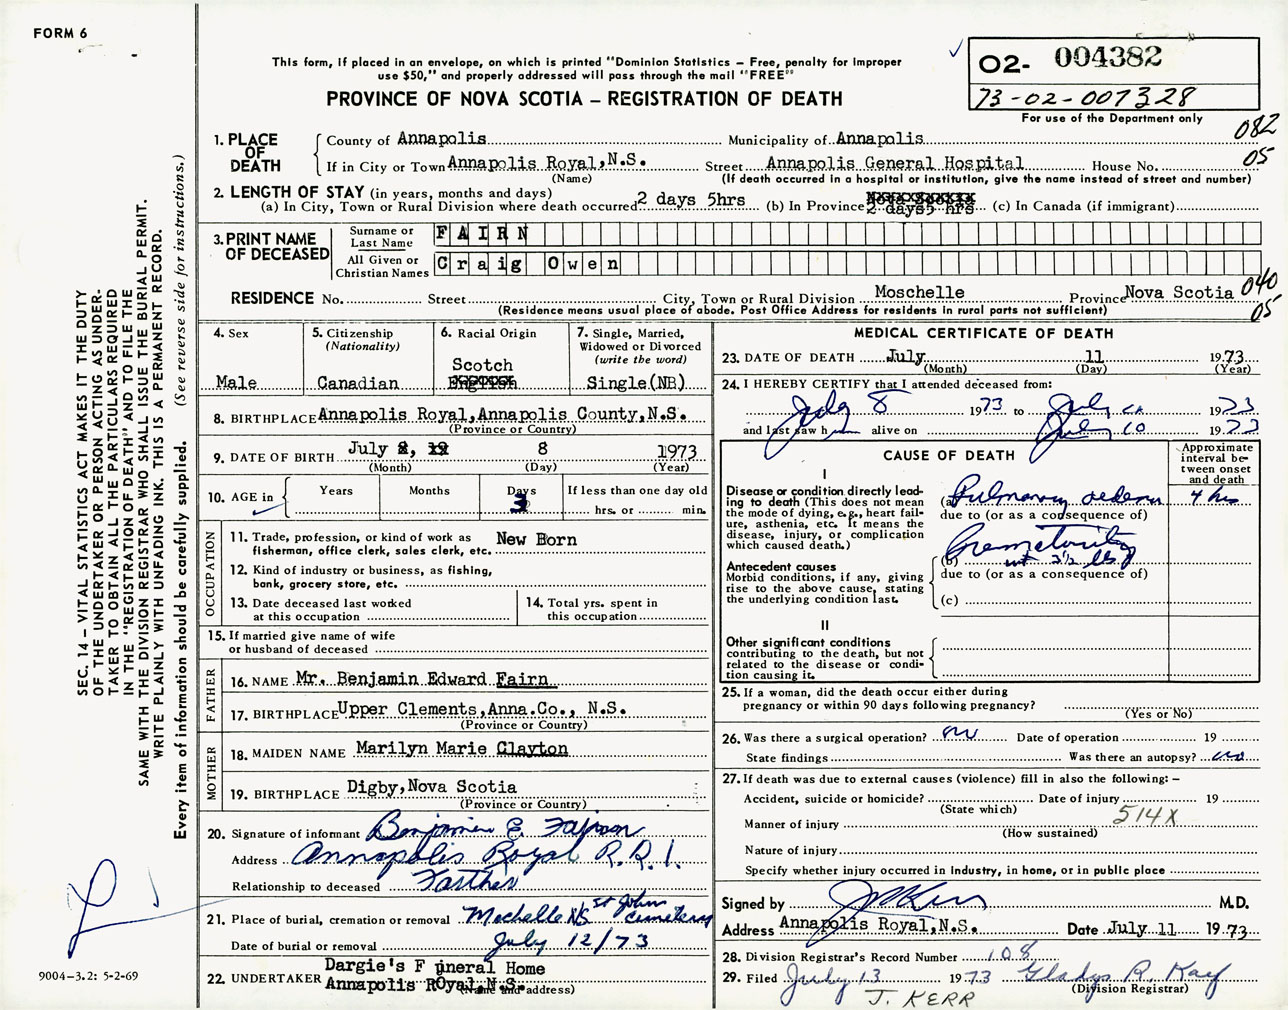 FORM 6
This form, if placed in an envelope, on which is printed "Dominion Statistics – Free, penalty for improper
use $50," and properly addressed will pass through the mail "FREE"
PROVINCE OF NOVA SCOTIA – REGISTRATION OF DEATH
02- 004382
73-02-007328
For use of the Department only
082
05
1. PLACE OF DEATH
County of Annapolis Municipality of Annapolis
If in City or Town Annapolis Royal, N.S. Street Annapolis General Hospital House No.
(Name) (If death occurred in a hospital or institution, give the name instead of street and number)
2. LENGTH OF STAY (in years, months and days)
(a) In City, Town or Rural Division where death occurred 2 days 5hrs (b) In Province 2 days5 hrs (c) In Canada (if immigrant)
3. PRINT NAME OF DECEASED
Surname or Last Name FAIRN
All Given or Christian Names Craig Owen
RESIDENCE No. Street City, Town or Rural Division Moschelle Province Nova Scotia
040
05
(Residence means usual place of abode. Post Office Address for residents in rural parts not sufficient)
4. Sex
Male
5. Citizenship
(Nationality)
Canadian
6. Racial Origin
Scotch
English
7. Single, Married,
Widowed or Divorced
(write the word)
Single(NB)
8. BIRTHPLACE Annapolis Royal, Annapolis County, N.S.
(Province or Country)
9. DATE OF BIRTH July 8 1973
(Month) (Day) (Year)
10. AGE in
Years Months Days If less than one day old
3 hrs. or min.
OCCUPATION
11. Trade, profession, or kind of work as New Born
fisherman, office clerk, sales clerk, etc.
12. Kind of industry or business, as fishing,
bank, grocery store, etc.
13. Date deceased last worked
at this occupation
14. Total yrs. spent in
this occupation
15. If married give name of wife
or husband of deceased
FATHER
16. NAME Mr. Benjamin Edward Fairn
17. BIRTHPLACE Upper Clements, Anna.Co., N.S.
(Province or Country)
MOTHER
18. MAIDEN NAME Marilyn Marie Clayton
19. BIRTHPLACE Digby, Nova Scotia
(Province or Country)
20. Signature of informant Benjamin E. Fairn
Address Annapolis Royal R.R.1.
Relationship to deceased Farther
21. Place of burial, cremation or removal Mochelle NS St John Cemetery
Date of burial or removal July 12/73
22. UNDERTAKER Dargie's Funeral Home
Annapolis Royal, N.S.
(Name and address)
MEDICAL CERTIFICATE OF DEATH
23. DATE OF DEATH July 11 1973
(Month) (Day) (Year)
24. I HEREBY CERTIFY that I attended deceased from:
July 8 1973 to July 1973
and last saw h alive on July 10 1973
CAUSE OF DEATH
Approximate
interval be-
tween onset
and death
I
Disease or condition directly lead-
ing to death (This does not mean
the mode of dying, e.g., heart fail-
ure, asthenia, etc. It means the
disease, injury, or complication
which caused death.)
(a) Pulmonary oedema 4 hrs
due to (or as a consequence of)
Antecedent causes
Morbid conditions, if any, giving
rise to the above cause, stating
the underlying condition last.
(b) Prematurity
wt 3½ lbs
due to (or as a consequence of)
(c)
II
Other significant conditions
contributing to the death, but not
related to the disease or condi-
tion causing it.
25. If a woman, did the death occur either during
pregnancy or within 90 days following pregnancy?
(Yes or No)
26. Was there a surgical operation? no Date of operation 19
State findings Was there an autopsy? no
27. If death was due to external causes (violence) fill in also the following: –
Accident, suicide or homicide? Date of injury 19
(State which)
514X
Manner of injury
(How sustained)
Nature of injury
Specify whether injury occurred in industry, in home, or in public place
Signed by M.D.
Address Annapolis Royal, N.S. Date July 11 1973
28. Division Registrar's Record Number 108
29. Filed July 13 1973 Gladys R. Kay
(Division Registrar)
J. KERR
SEC. 14 – VITAL STATISTICS ACT MAKES IT THE DUTY
OF THE UNDERTAKER OR PERSON ACTING AS UNDER-
TAKER TO OBTAIN ALL THE PARTICULARS REQUIRED
IN THE "REGISTRATION OF DEATH" AND TO FILE THE
SAME WITH THE DIVISION REGISTRAR WHO SHALL ISSUE THE BURIAL PERMIT.
WRITE PLAINLY WITH UNFADING INK. THIS IS A PERMANENT RECORD.
Every item of information should be carefully supplied. (See reverse side for instructions.)
9004-3.2: 5-2-69